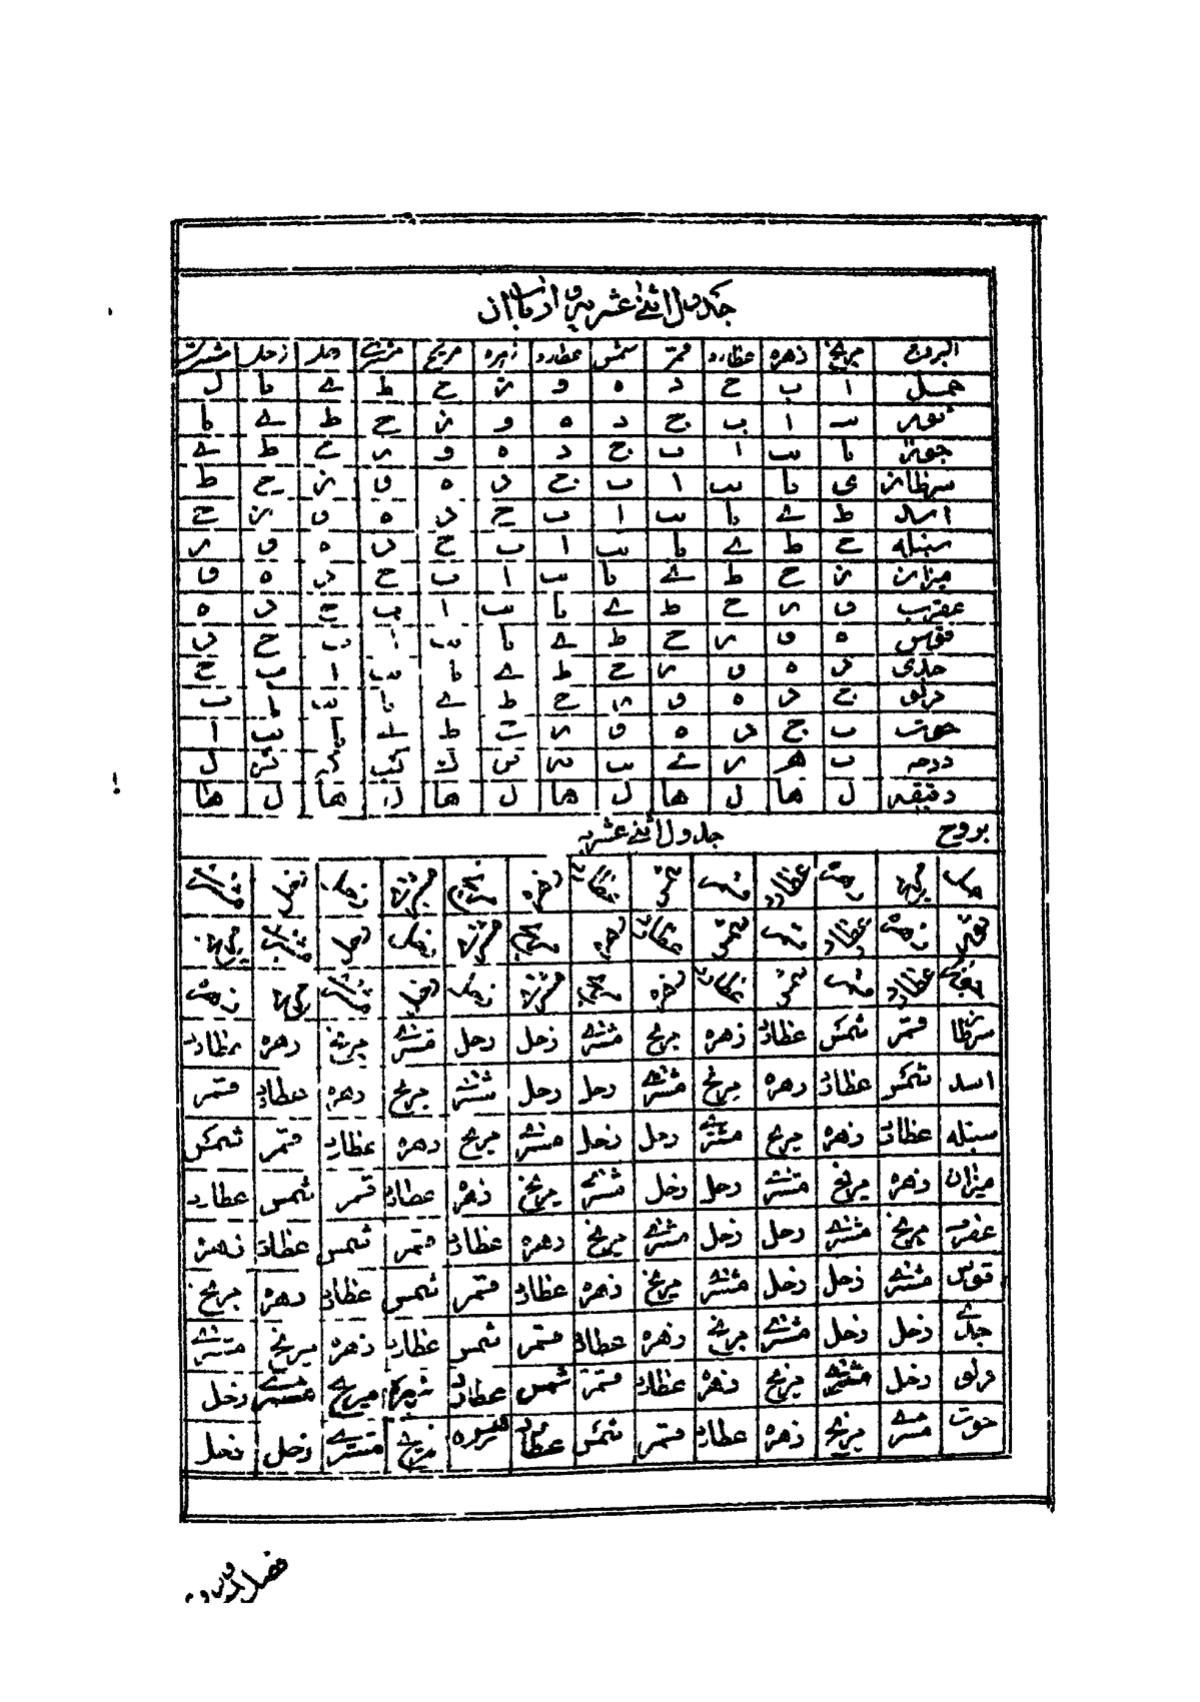 جدول اثنے عشریہ و اربابان
البروج مریخ زهره عطارد قمر شمس عطارد زهره مریخ مشترے زحل زحل مشترے
حمل ا ب ج د ه و ز ح ط ے یا ل
ثور یب ا ب ج د ه و ز ح ط ے یا
جوزا یا یب ا ب ج د ه و ز ح ط ے
سرطان ی یا یب ا ب ج د ه و ز ح ط
اسد ط ے یا یب ا ب ج د ه و ز ح
سنبله ح ط ے یا یب ا ب ج د ه و ز
میزان ز ح ط ے یا یب ا ب ج د ه و
عقرب و ز ح ط ے یا یب ا ب ج د ه
قوس ه و ز ح ط ے یا یب ا ب ج د
جدی د ه و ز ح ط ے یا یب ا ب ج
دلو ج د ه و ز ح ط ے یا یب ا ب
حوت ب ج د ه و ز ح ط ے یا یب ا
درجه ب ه ز ے یب
دقیقه ل ها ل ها ل ها ل ها ل ها ل ها
بروج جدول اثنے عشریہ
حمل مریخ زهره عطارد قمر شمس عطارد زهره مریخ مشترے زحل زحل مشترے
ثور زهره عطارد قمر شمس عطارد زهره مریخ مشترے زحل زحل مشترے مریخ
جوزا عطارد قمر شمس عطارد زهره مریخ مشترے زحل زحل مشترے مریخ زهره
سرطان قمر شمس عطارد زهره مریخ مشترے زحل زحل مشترے مریخ زهره عطارد
اسد شمس عطارد زهره مریخ مشترے زحل زحل مشترے مریخ زهره عطارد قمر
سنبله عطارد زهره مریخ مشترے زحل زحل مشترے مریخ زهره عطارد قمر شمس
میزان زهره مریخ مشترے زحل زحل مشترے مریخ زهره عطارد قمر شمس عطارد
عقرب مریخ مشترے زحل زحل مشترے مریخ زهره عطارد قمر شمس عطارد زهره
قوس مشترے زحل زحل مشترے مریخ زهره عطارد قمر شمس عطارد زهره مریخ
جدے زحل زحل مشترے مریخ زهره عطارد قمر شمس عطارد زهره مریخ مشترے
دلو زحل مشترے مریخ زهره عطارد قمر شمس عطارد زهره مریخ مشترے زحل
حوت مشترے مریخ زهره عطارد قمر شمس عطارد زهره مریخ مشترے زحل زحل
فصل